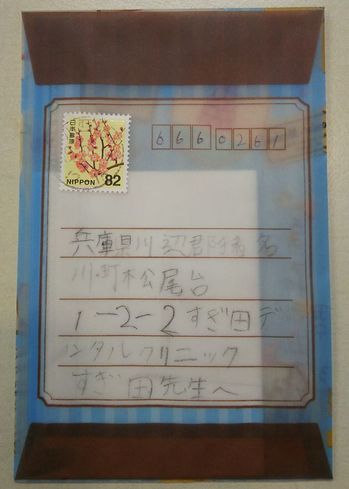 日本郵便
NIPPON 82
6660261
兵庫県川辺郡猪名
川町松尾台
1-2-2すぎ田デ
ンタルクリニック
すぎ田先生へ